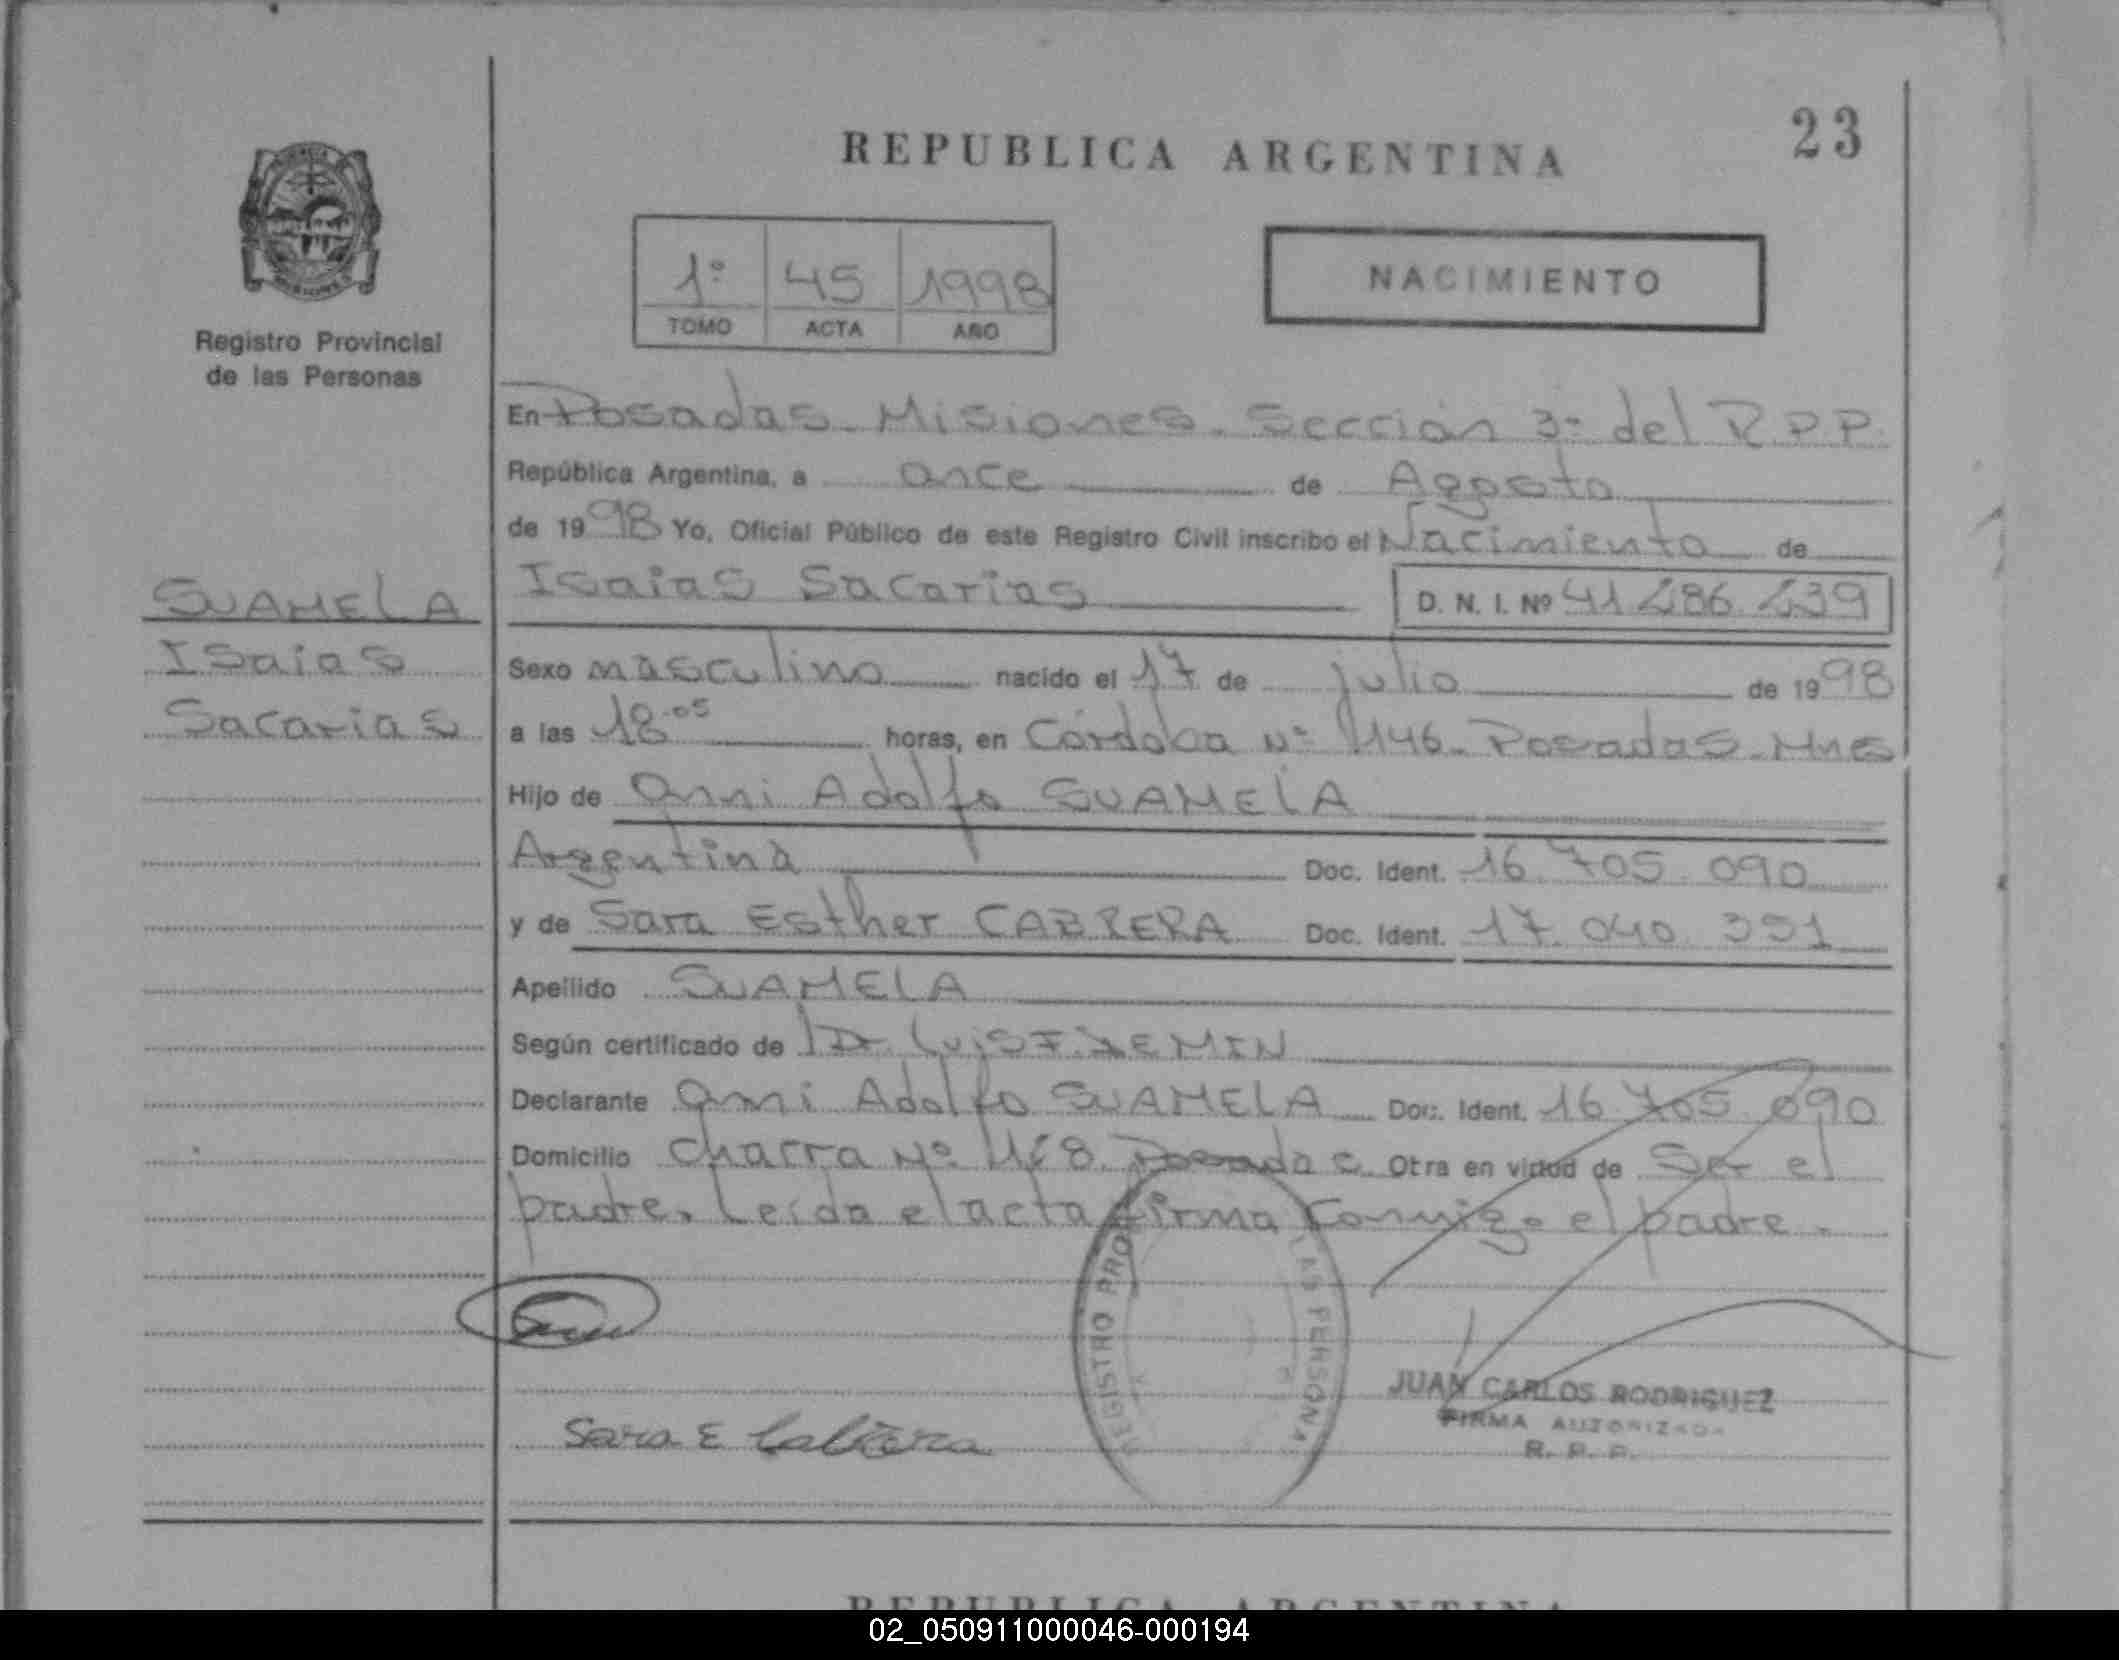 23
REPUBLICA ARGENTINA
1º 45 1998
TOMO ACTA AÑO
NACIMIENTO
Registro Provincial
de las Personas
En Posadas - Misiones - Sección 3º del R.P.P.
República Argentina, a once de Agosto
de 1998 Yo, Oficial Público de este Registro Civil inscribo el Nacimiento de
Isaias Sacarias D. N. I. Nº 41 286 239
Sexo masculino nacido el 17 de julio de 1998
a las 18.05 horas, en Córdoba Nº 1146 - Posadas - Mnes
Hijo de Omni Adolfo SUAMELA
Argentina Doc. Ident. 16.705.090
y de Sara Esther CABRERA Doc. Ident. 17.040.351
Apellido SUAMELA
Según certificado de Dr. Luis F.
Declarante Omni Adolfo SUAMELA Doc. Ident. 16.705.090
Domicilio Chacra Nº Posadas Otra en virtud de Ser el
padre. Leída el acta firma conmigo el padre.
SUAMELA
Isaias
Sacarias
REGISTRO PRO LAS PERSONA
Sara E Cabrera
JUAN CARLOS RODRIGUEZ
FIRMA AUTORIZADA
R. P. P.
REPUBLICA ARGENTINA
02_050911000046-000194